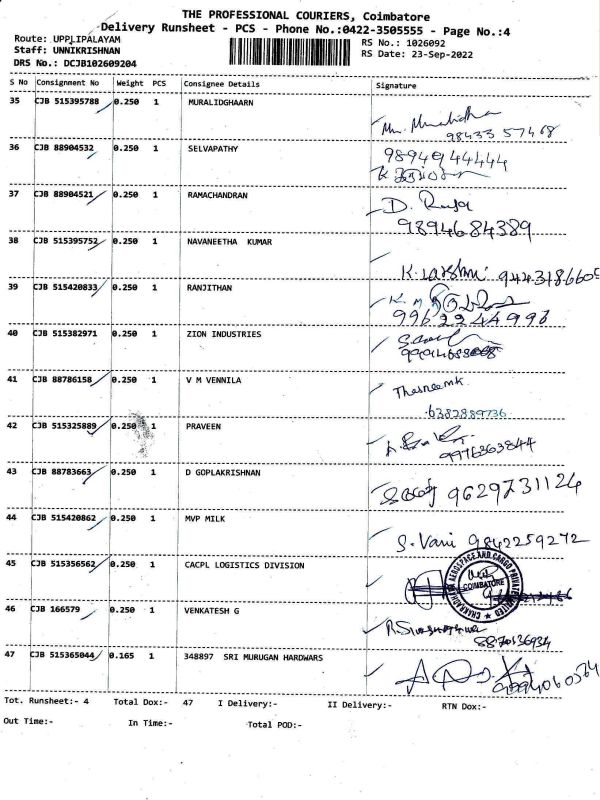 THE PROFESSIONAL COURIERS, Coimbatore
Delivery Runsheet - PCS - Phone No.:0422-3505555 - Page No.:4
Route: UPPLIPALAYAM
RS No.: 1026092
Staff: UNNIKRISHNAN
RS Date: 23-Sep-2022
DRS No.: DCJB102609204
S No Consignment No Weight PCS Consignee Details Signature
35 CJB 515395788 0.250 1 MURALIDGHAARN
98433 57468
36 CJB 88904532 0.250 1 SELVAPATHY
9894944444
37 CJB 88904521 0.250 1 RAMACHANDRAN
D. Raja
9894684389
38 CJB 515395752 0.250 1 NAVANEETHA KUMAR
K. Lakshmi
39 CJB 515420833 0.250 1 RANJITHAN
9962244998
40 CJB 515382971 0.250 1 ZION INDUSTRIES
41 CJB 88786158 0.250 1 V M VENNILA
Thasneemk
6382889736
42 CJB 515325889 0.250 1 PRAVEEN
9976363844
43 CJB 88783663 0.250 1 D GOPLAKRISHNAN
9629731124
44 CJB 515420862 0.250 1 MVP MILK
S. Vani 9842259272
45 CJB 515356562 0.250 1 CACPL LOGISTICS DIVISION
AEROSPACE AND CARGO PRIVATE LIMITED
COIMBATORE
46 CJB 166579 0.250 1 VENKATESH G
8870136934
47 CJB 515365044 0.165 1 348897 SRI MURUGAN HARDWARS
Tot. Runsheet:- 4 Total Dox:- 47 I Delivery:- II Delivery:- RTN Dox:-
Out Time:- In Time:- Total POD:-